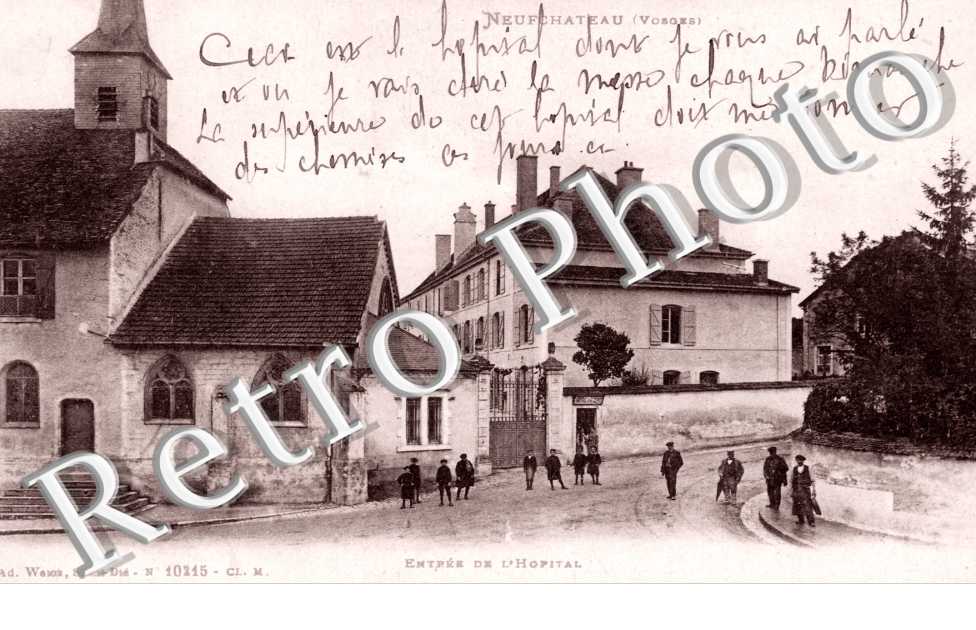 NEUFCHATEAU (VOSGES)
Ceci est l'hopital dont je vous ai parlé
et ou je vais dire la messe chaque Dimanche
La supérieure de cet hopital doit me donner
des chemises ces jours ci
Retro Photo
Ad. WEICK, St-DIÉ - N° 10215 - CL. M.
ENTRÉE DE L'HOPITAL